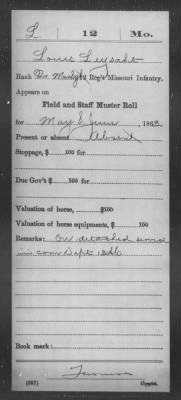 L 12 Mo.
Louis Lysaht
Rank 12 Reg't Missouri Infantry.
Appears on
Field and Staff Muster Roll
for May & June, 1862.
Present or absent Absent
Stoppage, $ 100 for
Due Gov't $ 100 for
Valuation of horse, $ 100
Valuation of horse equipments, $ 100
Remarks: On detached service
in com Dept
Book mark:
(667) Copyist.